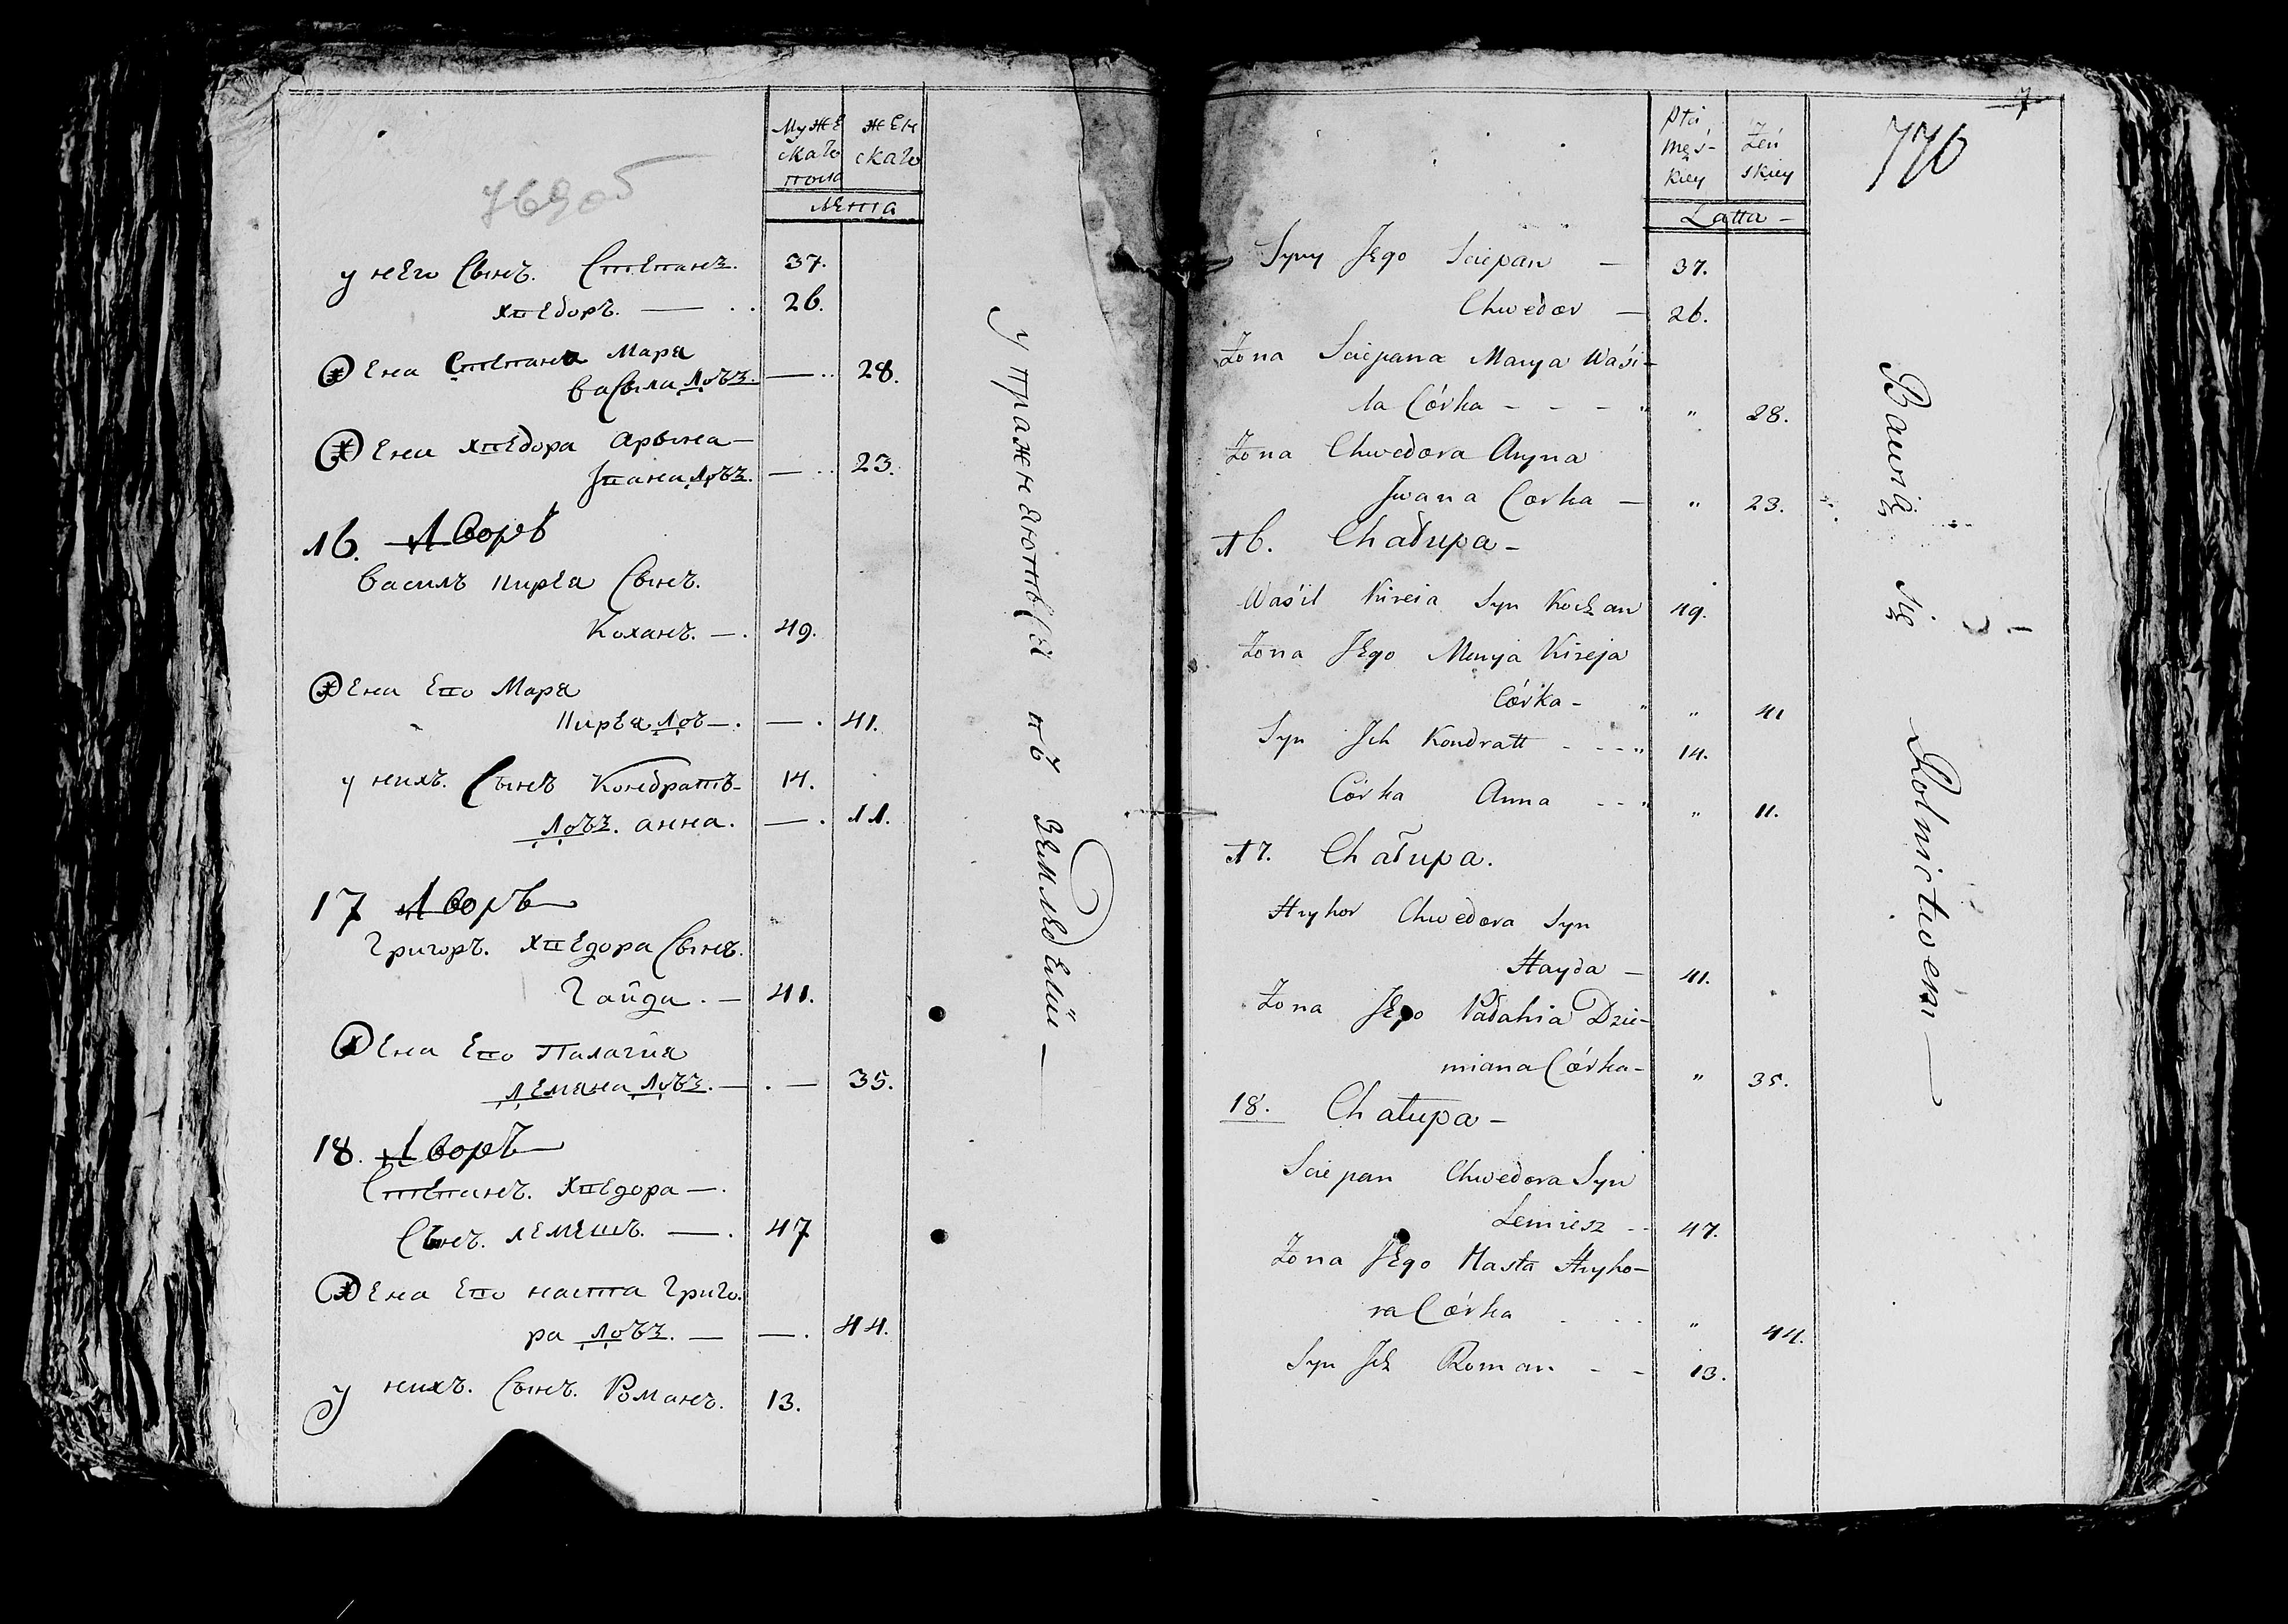 Муже
скаго
пола
Жен
скаго
Лета
769об
у него Сынъ. Степанъ. 37.
Хведоръ. — 26.
Жена Степана Маря
Васыля Дочъ. — 28.
Жена Хведора Арына —
Ивана Дочъ. — 23.
16. Дворъ
Василъ Кирея Сынъ.
Коханъ. — 49.
Жена Его Маря
Кирея Доч —. — 41.
у нихъ. Сынъ Кондратъ — 14.
Дочъ. анна. — 11.
17 Дворъ
Григоръ. Хведора Сынъ.
Гайда. — 41.
Жена Его Палагия
Демяна Дочъ. — — 35.
18. Дворъ
Степанъ. Хведора —.
Сынъ. лемешъ. — 47
Жена Его наста Григо.
ра Дочъ. — — 44.
у нихъ. Сынъ. Романъ. 13.
упражняютьСя въ Земледелии —
7
776
Płci
męs-
kiey
Żeń
skiey
Latta —
Syny Jego Sciepan — 37.
Chwedor — 26.
Żona Sciepana Marya Waśi-
la Córka - - - " " 28.
Żona Chwedora Aryna
Jwana Corka — " 23.
16. Chałupa —
Waśil Kireia Syn Kochan 49.
Żona Jego Marya Kireja
Córka - " " 41
Syn Jch Kondratt - - - " 14.
Córka Anna - - " " 11.
17. Chałupa.
Hryhor Chwedora Syn
Hayda — 41.
Żona Jego Pałahia Dzie-
miana Córka - " 35.
18. Chałupa —
Sciepan Chwedora Syn
Lemiesz - - 47.
Żona Jego Nasta Hryho-
ra Córka . . . . " 44.
Syn Jch Roman - - 13.
Bawią się Rolnictwem —